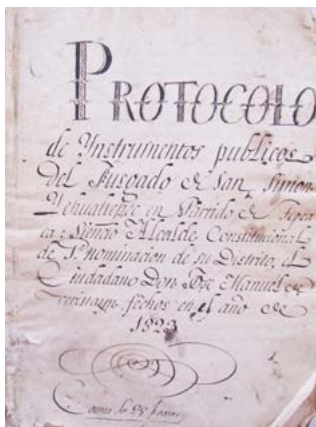 PROTOCOLO
de Ynstrumentos publicos
del Jusgado de San Simon
Yehualtepec en Partido de Tepea
ca: siendo Alcalde Constitucional
de 1ª nominacion de su Distrito, el
Ciudadano Don Jose Manuel de
fechos en el año de
1823